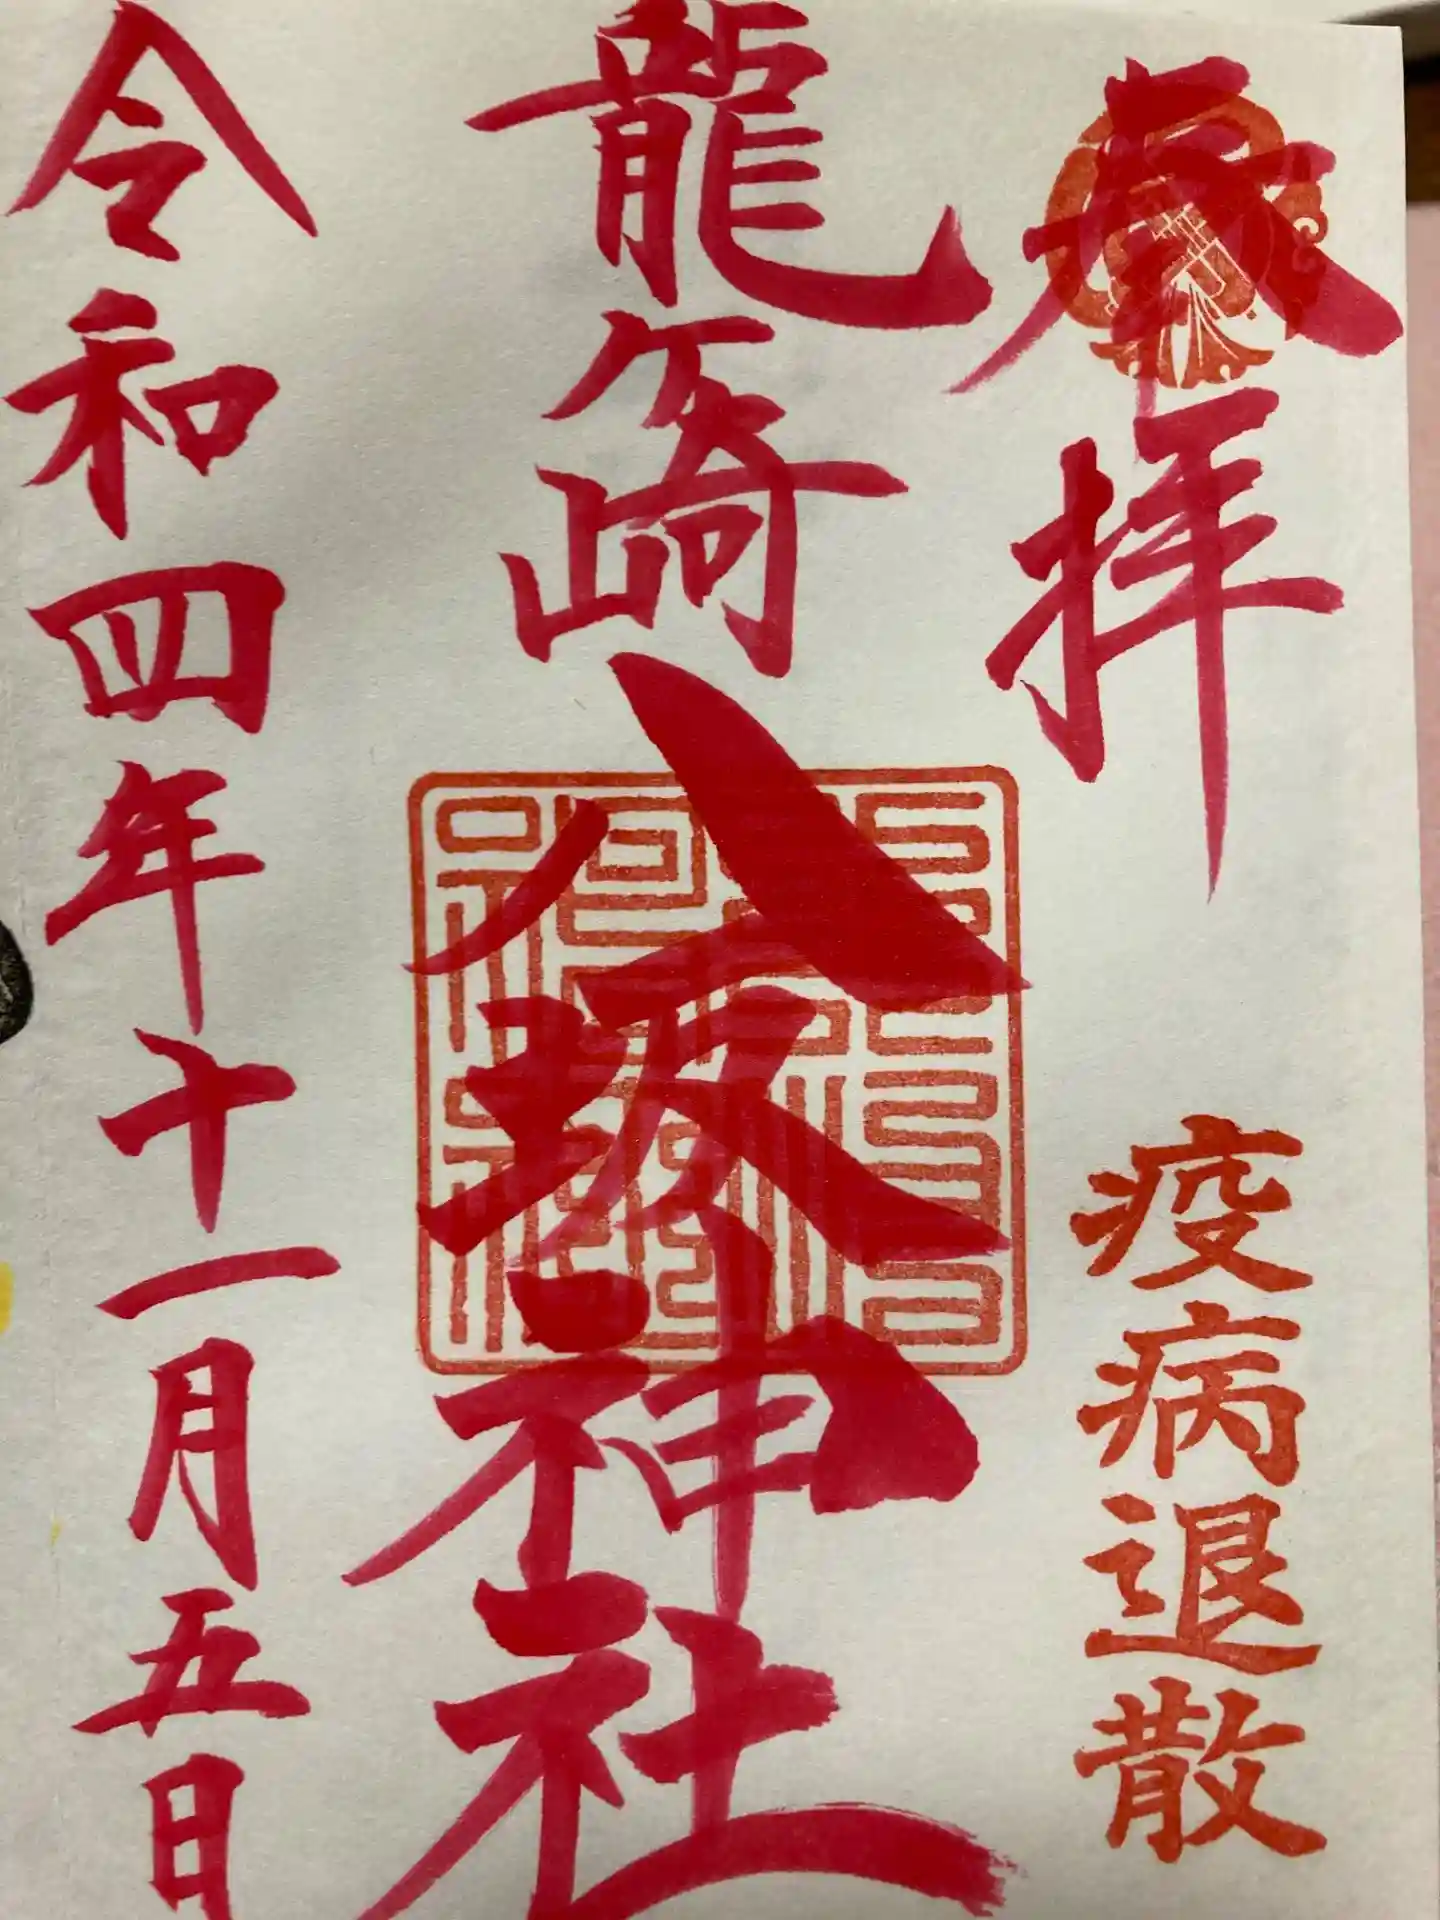 奉拝
疫病退散
龍ケ崎
八坂神社
令和四年十一月五日